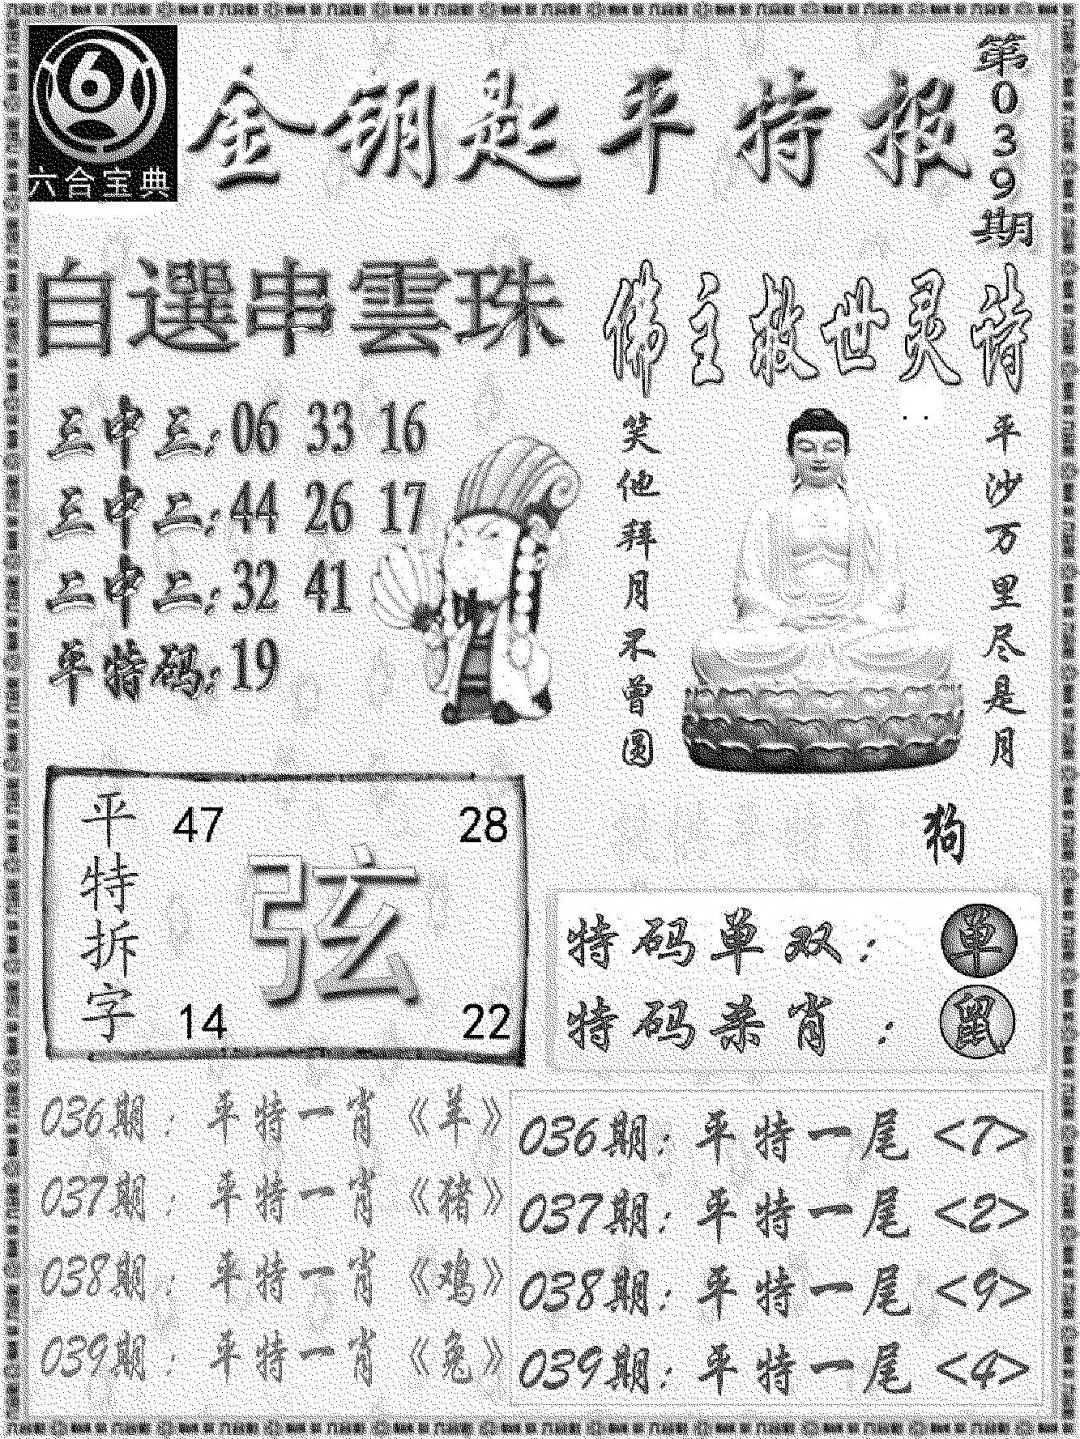 六合宝典
金钥匙平特报
第039期
自選串雲珠
三中三:06 33 16
三中二:44 26 17
二中二:32 41
单特码:19
佛主救世灵诗
笑他拜月不曾圆
平沙万里尽是月
狗
平特拆字
47 28
弦
14 22
特码单双:单
特码杀肖:鼠
036期:平特一肖《羊》
037期:平特一肖《猪》
038期:平特一肖《鸡》
039期:平特一肖《兔》
036期:平特一尾<7>
037期:平特一尾<2>
038期:平特一尾<9>
039期:平特一尾<4>